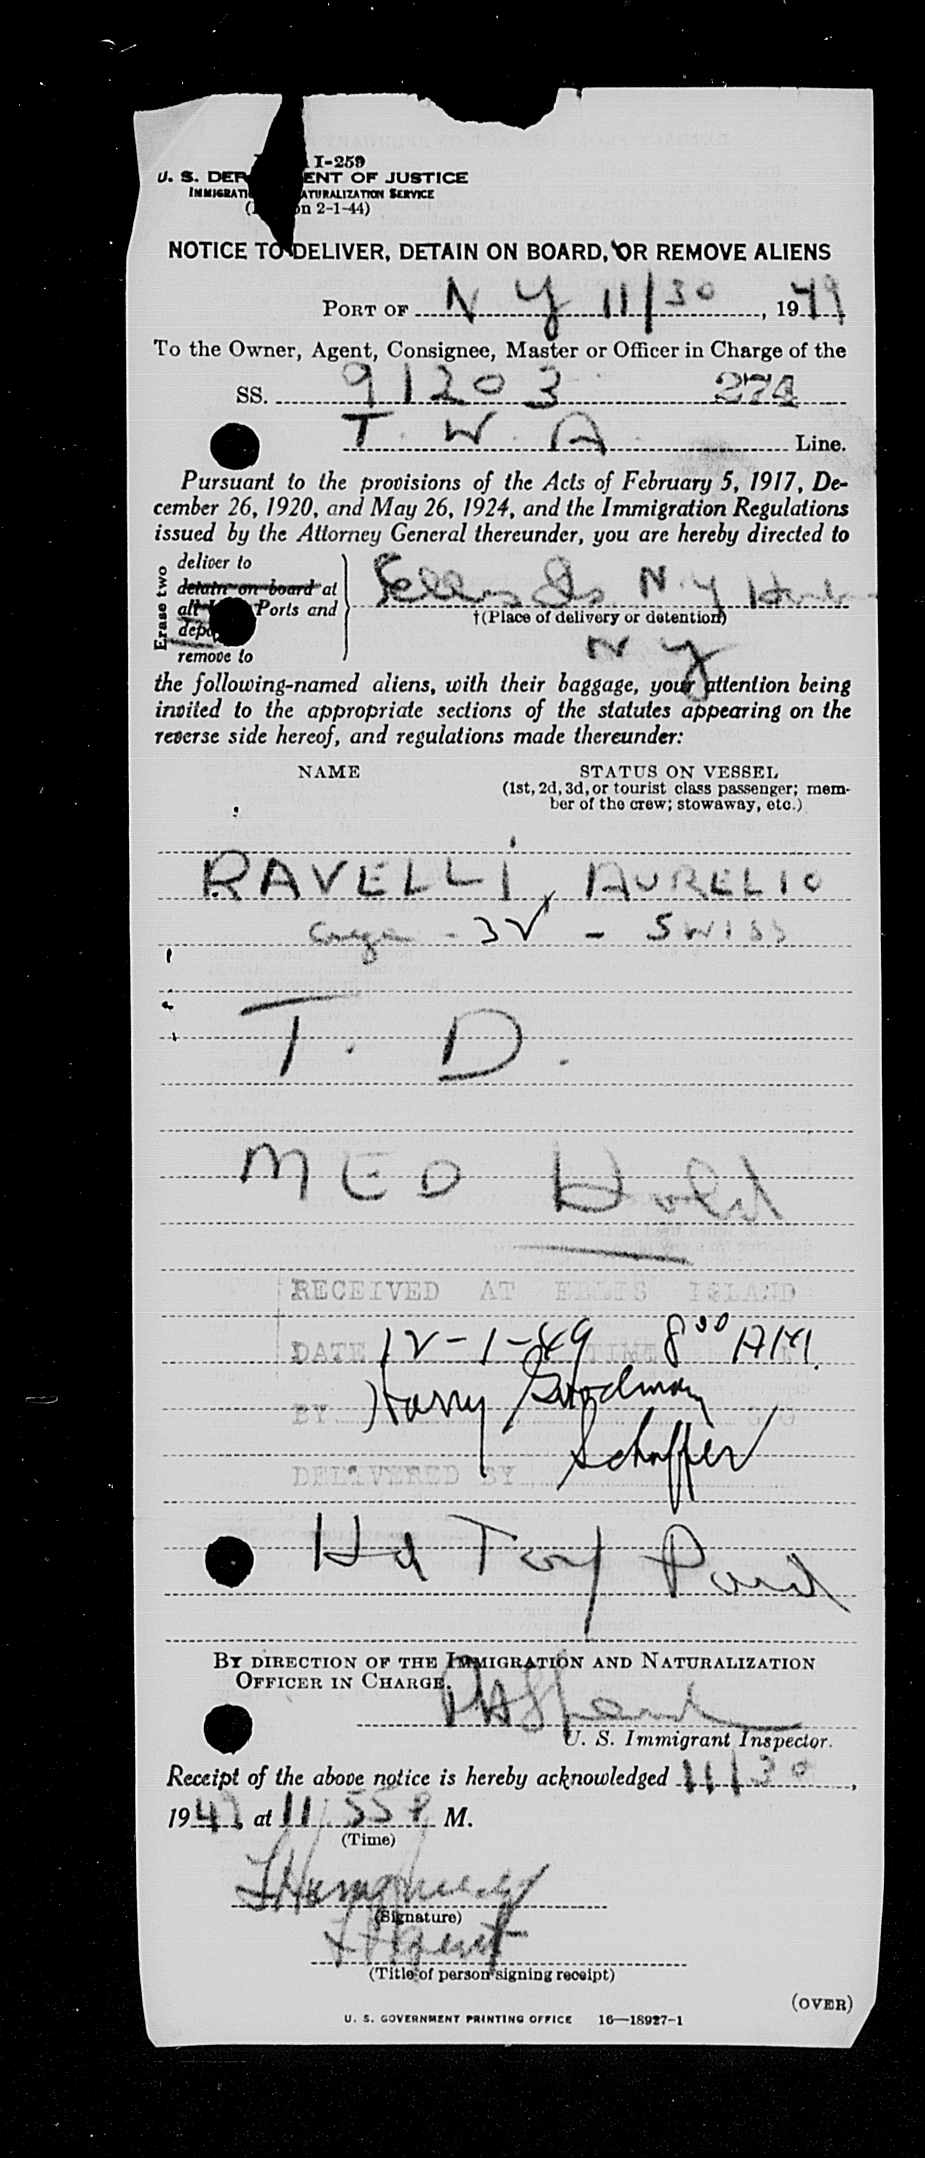 I-259
U. S. DEP ENT OF JUSTICE
IMMIGRATI ATURALIZATION SERVICE
( n 2-1-44)
NOTICE TO DELIVER, DETAIN ON BOARD, OR REMOVE ALIENS
PORT OF N Y 11/30, 1949
To the Owner, Agent, Consignee, Master or Officer in Charge of the
SS. 91203 274
T. W. A. Line.
Pursuant to the provisions of the Acts of February 5, 1917, De-
cember 26, 1920, and May 26, 1924, and the Immigration Regulations
issued by the Attorney General thereunder, you are hereby directed to
Erase two
deliver to
detain on board at
all Ports and
depo
remove to
N. Y
†(Place of delivery or detention)
N Y
the following-named aliens, with their baggage, your attention being
invited to the appropriate sections of the statutes appearing on the
reverse side hereof, and regulations made thereunder:
NAME STATUS ON VESSEL
(1st, 2d, 3d, or tourist class passenger; mem-
ber of the crew; stowaway, etc.)
RAVELLI, AURELIO
age - 32 - SWISS
T. D.
MED Hold
RECEIVED AT ELLIS ISLAND
DATE 12-1-49 TIME 8 00 AM.
BY Harry Goodman
Schaffer
DELIVERED BY
Hd Tax Paid
BY DIRECTION OF THE IMMIGRATION AND NATURALIZATION
OFFICER IN CHARGE.
U. S. Immigrant Inspector.
Receipt of the above notice is hereby acknowledged 11/30,
1949, at 11:55 P M.
(Time)
(Signature)
(Title of person signing receipt)
(OVER)
U. S. GOVERNMENT PRINTING OFFICE 16—18927-1